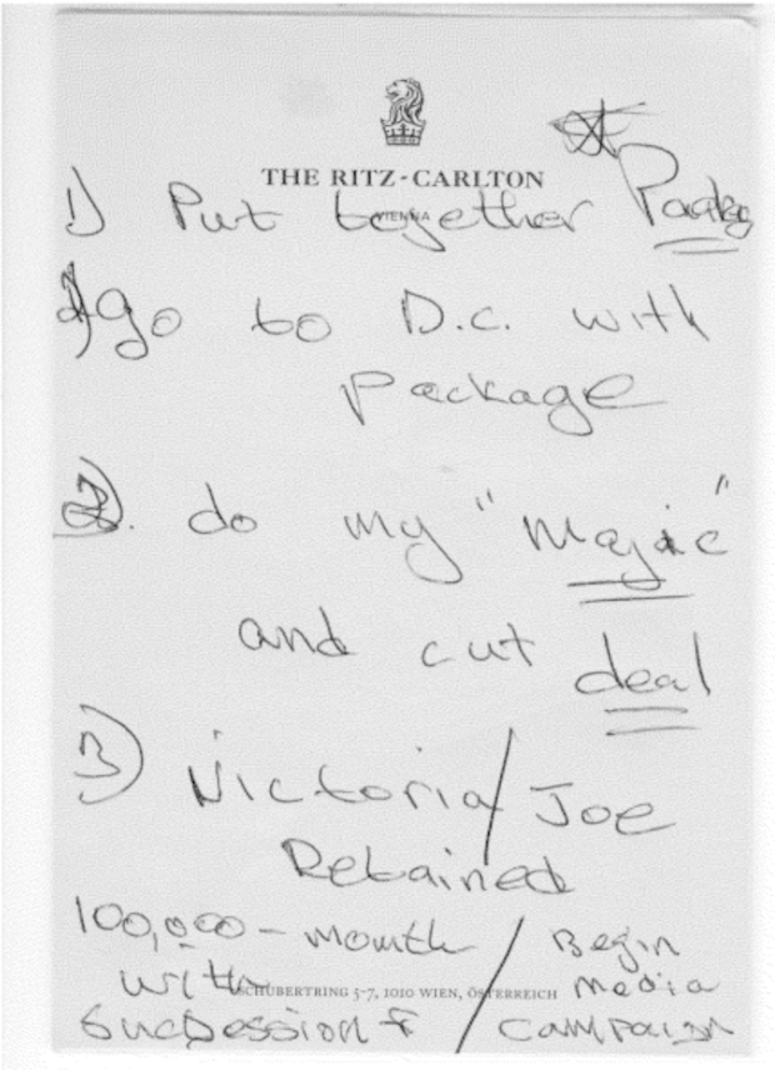 THE RITZ-CARLTON
VIENNA
1) Put together
go to D.C. with
package
2). do my "Majic"
and cut deal
3) Victoria/Joe
Retained
100,000-month / Begin
with media
campaign
SCHUBERTRING 5-7, 1010 WIEN, ÖSTERREICH